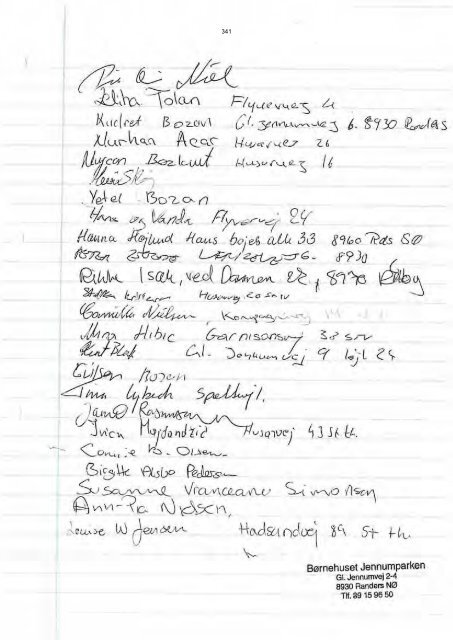 341
Zeliha Tolan Flyvervej 4
Kudret Bozovl Gl. Jennumvej 6. 8930 Randers
Nurhan Acar Husarvej 26
Nurcan Bozkurt Husarvej 16
Yetel Bozan
Hans og Vanda Flyvervej 24
Hanna Højlund Hans bojes alle 33 8960 Rds SØ
8930
Rikke Isak, ved Dammen 22, 8930
Husarvej 20 st tv
Camilla Nielsen,
Mira Hibic Garnisonsvej 38 stv
Kent Blak Gl. Jennumvej 9 lejl 24
Gülsen Bozen
Tina Lybech
Rasmussen
Ivica Majdandzic Husarvej 43 St th.
Connie B. Olsen
Birgitte Pedersen
Susanne Vranceanu Simonsen
Ann-Pia Nielsen,
Louise W Jensen Hadsundvej 89 St th
Børnehuset Jennumparken
Gl. Jennumvej 2-4
8930 Randers NØ
Tlf. 89 15 96 50